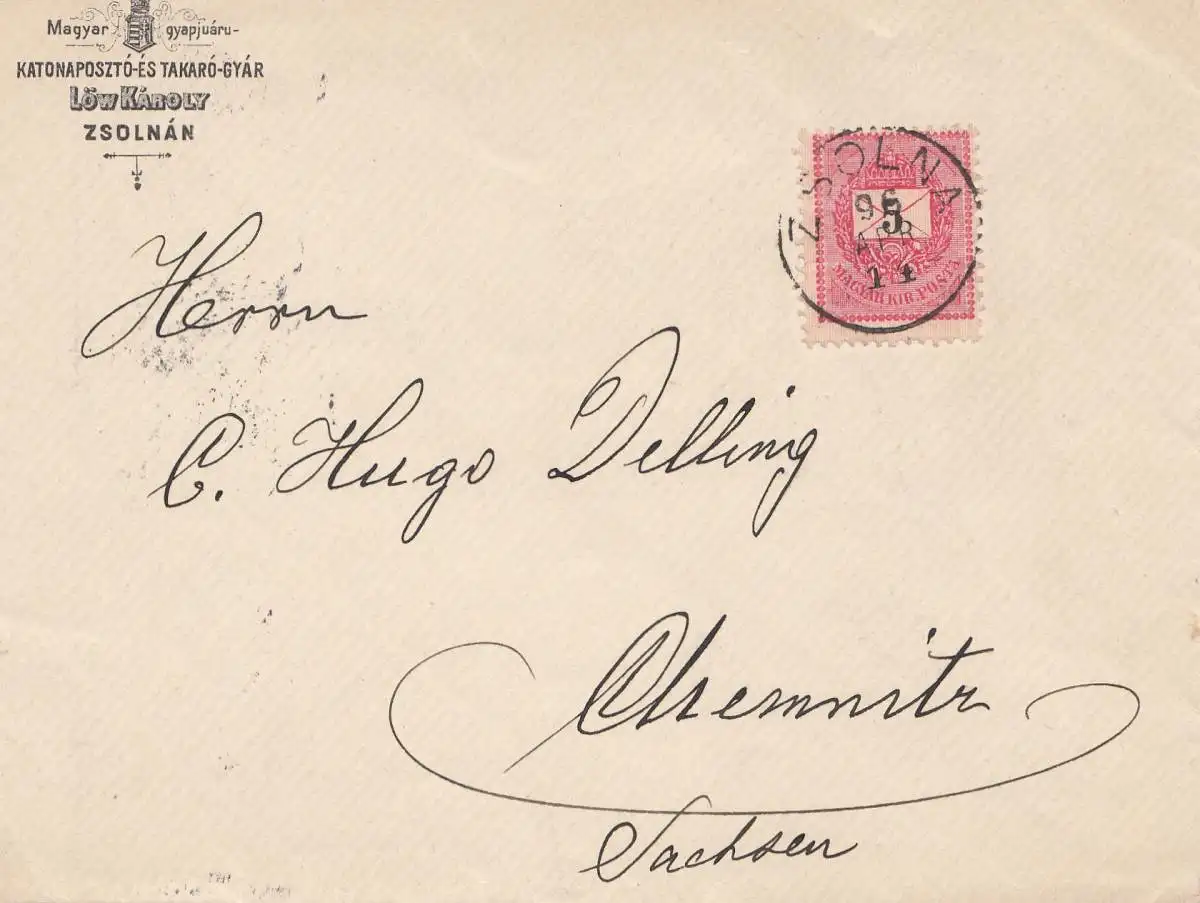 Magyar gyapjuáru-
KATONAPOSZTÓ-ÉS TAKARÓ-GYÁR
LÖW KÁROLY
ZSOLNÁN
ZSOLNA
96
APR
14
5
MAGYAR KIR. POSTA
Herrn
C. Hugo Delling
Chemnitz
Sachsen